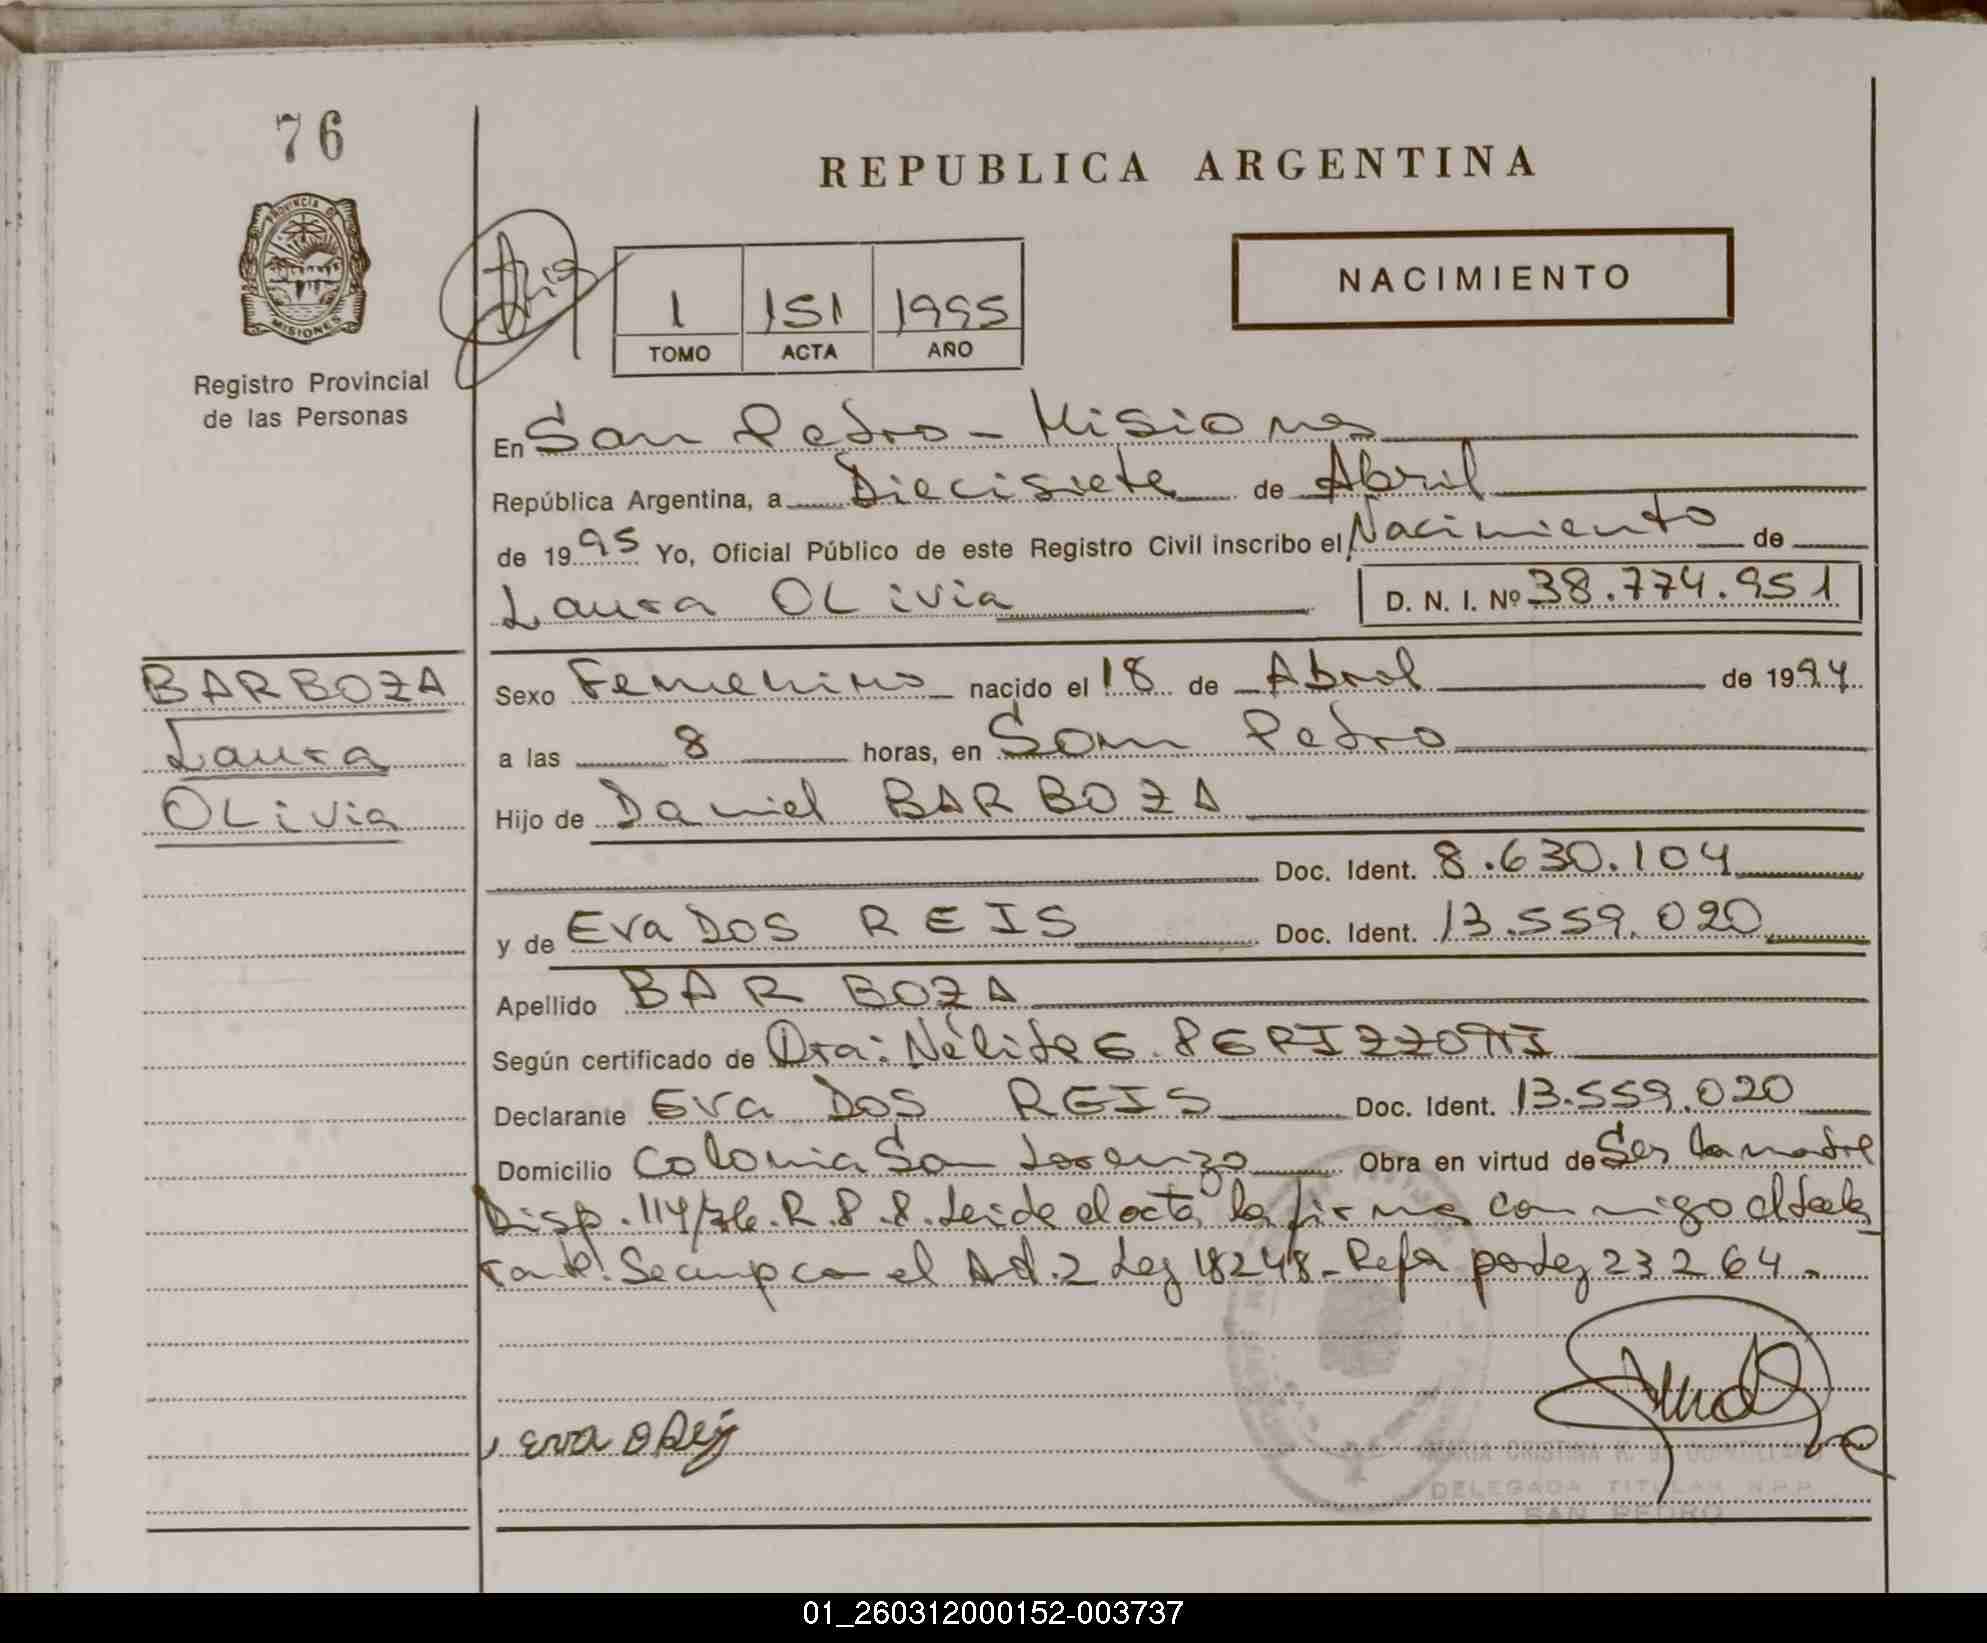 76
PROVINCIA DE
MISIONES
Registro Provincial
de las Personas
REPUBLICA ARGENTINA
NACIMIENTO
1 151 1995
TOMO ACTA AÑO
En San Pedro - Misiones
República Argentina, a Diecisiete de Abril
de 1995 Yo, Oficial Público de este Registro Civil inscribo el Nacimiento de
Laura OLivia D. N. I. Nº 38.774.951
BARBOZA
Laura
OLivia
Sexo Femenino nacido el 18 de Abril de 1994
a las 8 horas, en San Pedro
Hijo de Daniel BARBOZA
Doc. Ident. 8.630.104
y de Eva DOS REIS Doc. Ident. 13.559.020
Apellido BARBOZA
Según certificado de Dra: Nélida E. PERIZZOTTI
Declarante Eva DOS REIS Doc. Ident. 13.559.020
Domicilio Colonia San Lorenzo Obra en virtud de Ser la madre
Disp. 114/76. R.P.P. Leida el acta la firma conmigo el decla
rante. Se cump con el Art. 2 Ley 18248 - Refª por Ley 23264 -
Eva D Reis
MARIA CRISTINA R. DE
DELEGADA TITULAR R.P.P.
SAN PEDRO
01_260312000152-003737